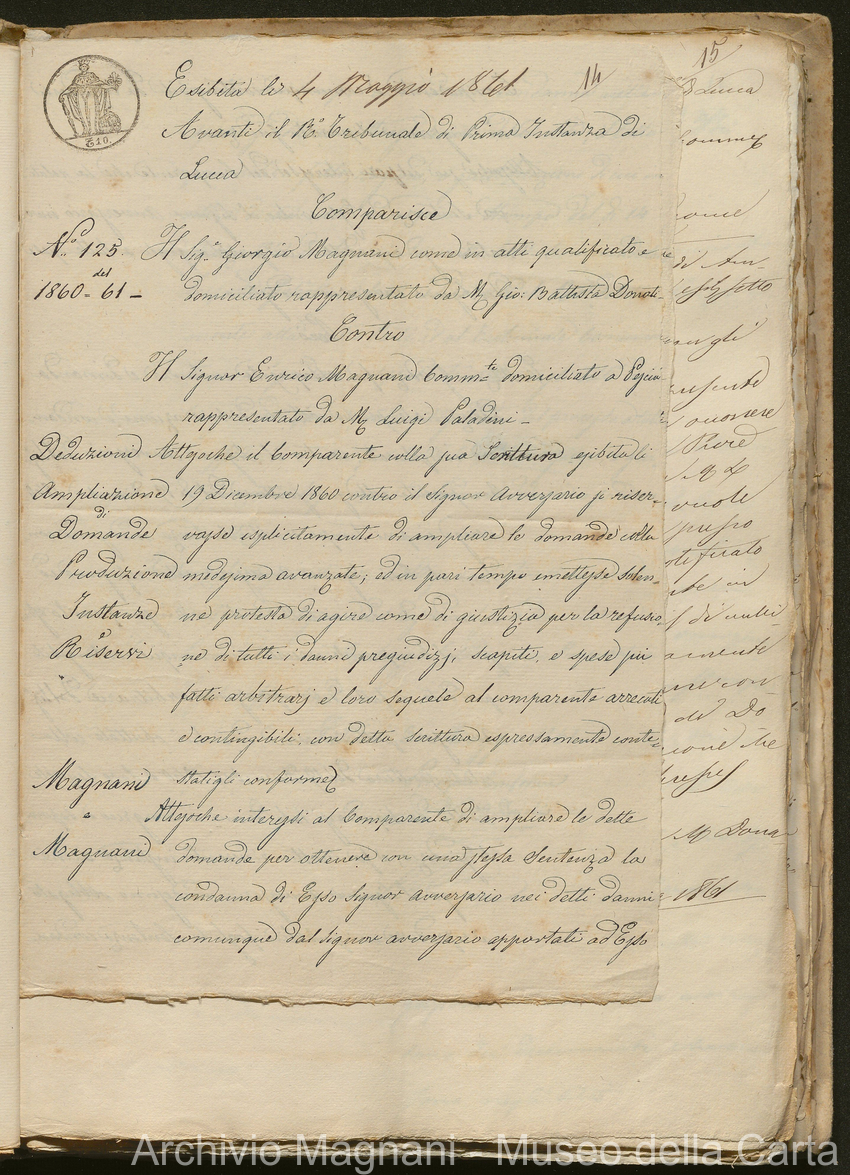 Esibita li 4 Maggio 1861 14
Avanti il R.º Tribunale di Prima Instanza di
Lucca
Comparisce
N.º 125.
del
1860-61-
Il Sig.r Giorgio Magnani come in atti qualificato e
domiciliato rappresentato da Mr Gio: Battista Donati-
Contro
Il Signor Enrico Magnani Comm.te domiciliato a Pescia
rappresentato da Mr Luigi Paladini-
Deduzioni
Ampliazione
di
Domande
Produzione
Instanze
Riservi
"
Magnani
"
Magnani
Attesoche il Comparente colla sua Scrittura esibita li
19 Dicembre 1860 contro il Signor Avversario si riser-
vasse esplicitamente di ampliare le domande colla
medesima avanzate; ed in pari tempo emettesse solen-
ne protesta di agire come di giustizia per la refusio
ne di tutti i danni pregiudizj, scapiti, e spese pei
fatti arbitrarj e loro sequele al comparente arrecati
e contingibili, con detta scrittura espressamente conte=
statigli conforme
Attesoche interessi al Comparente di ampliare le dette
domande per ottenere con una stessa Sentenza la
condanna di Esso Signor avversario nei detti danni
comunque dal Signor avversario apportati ad Esso
15
Lucca
di An-
notificato
te in
di Do
M Dona
1861
Archivio Magnani - Museo della Carta